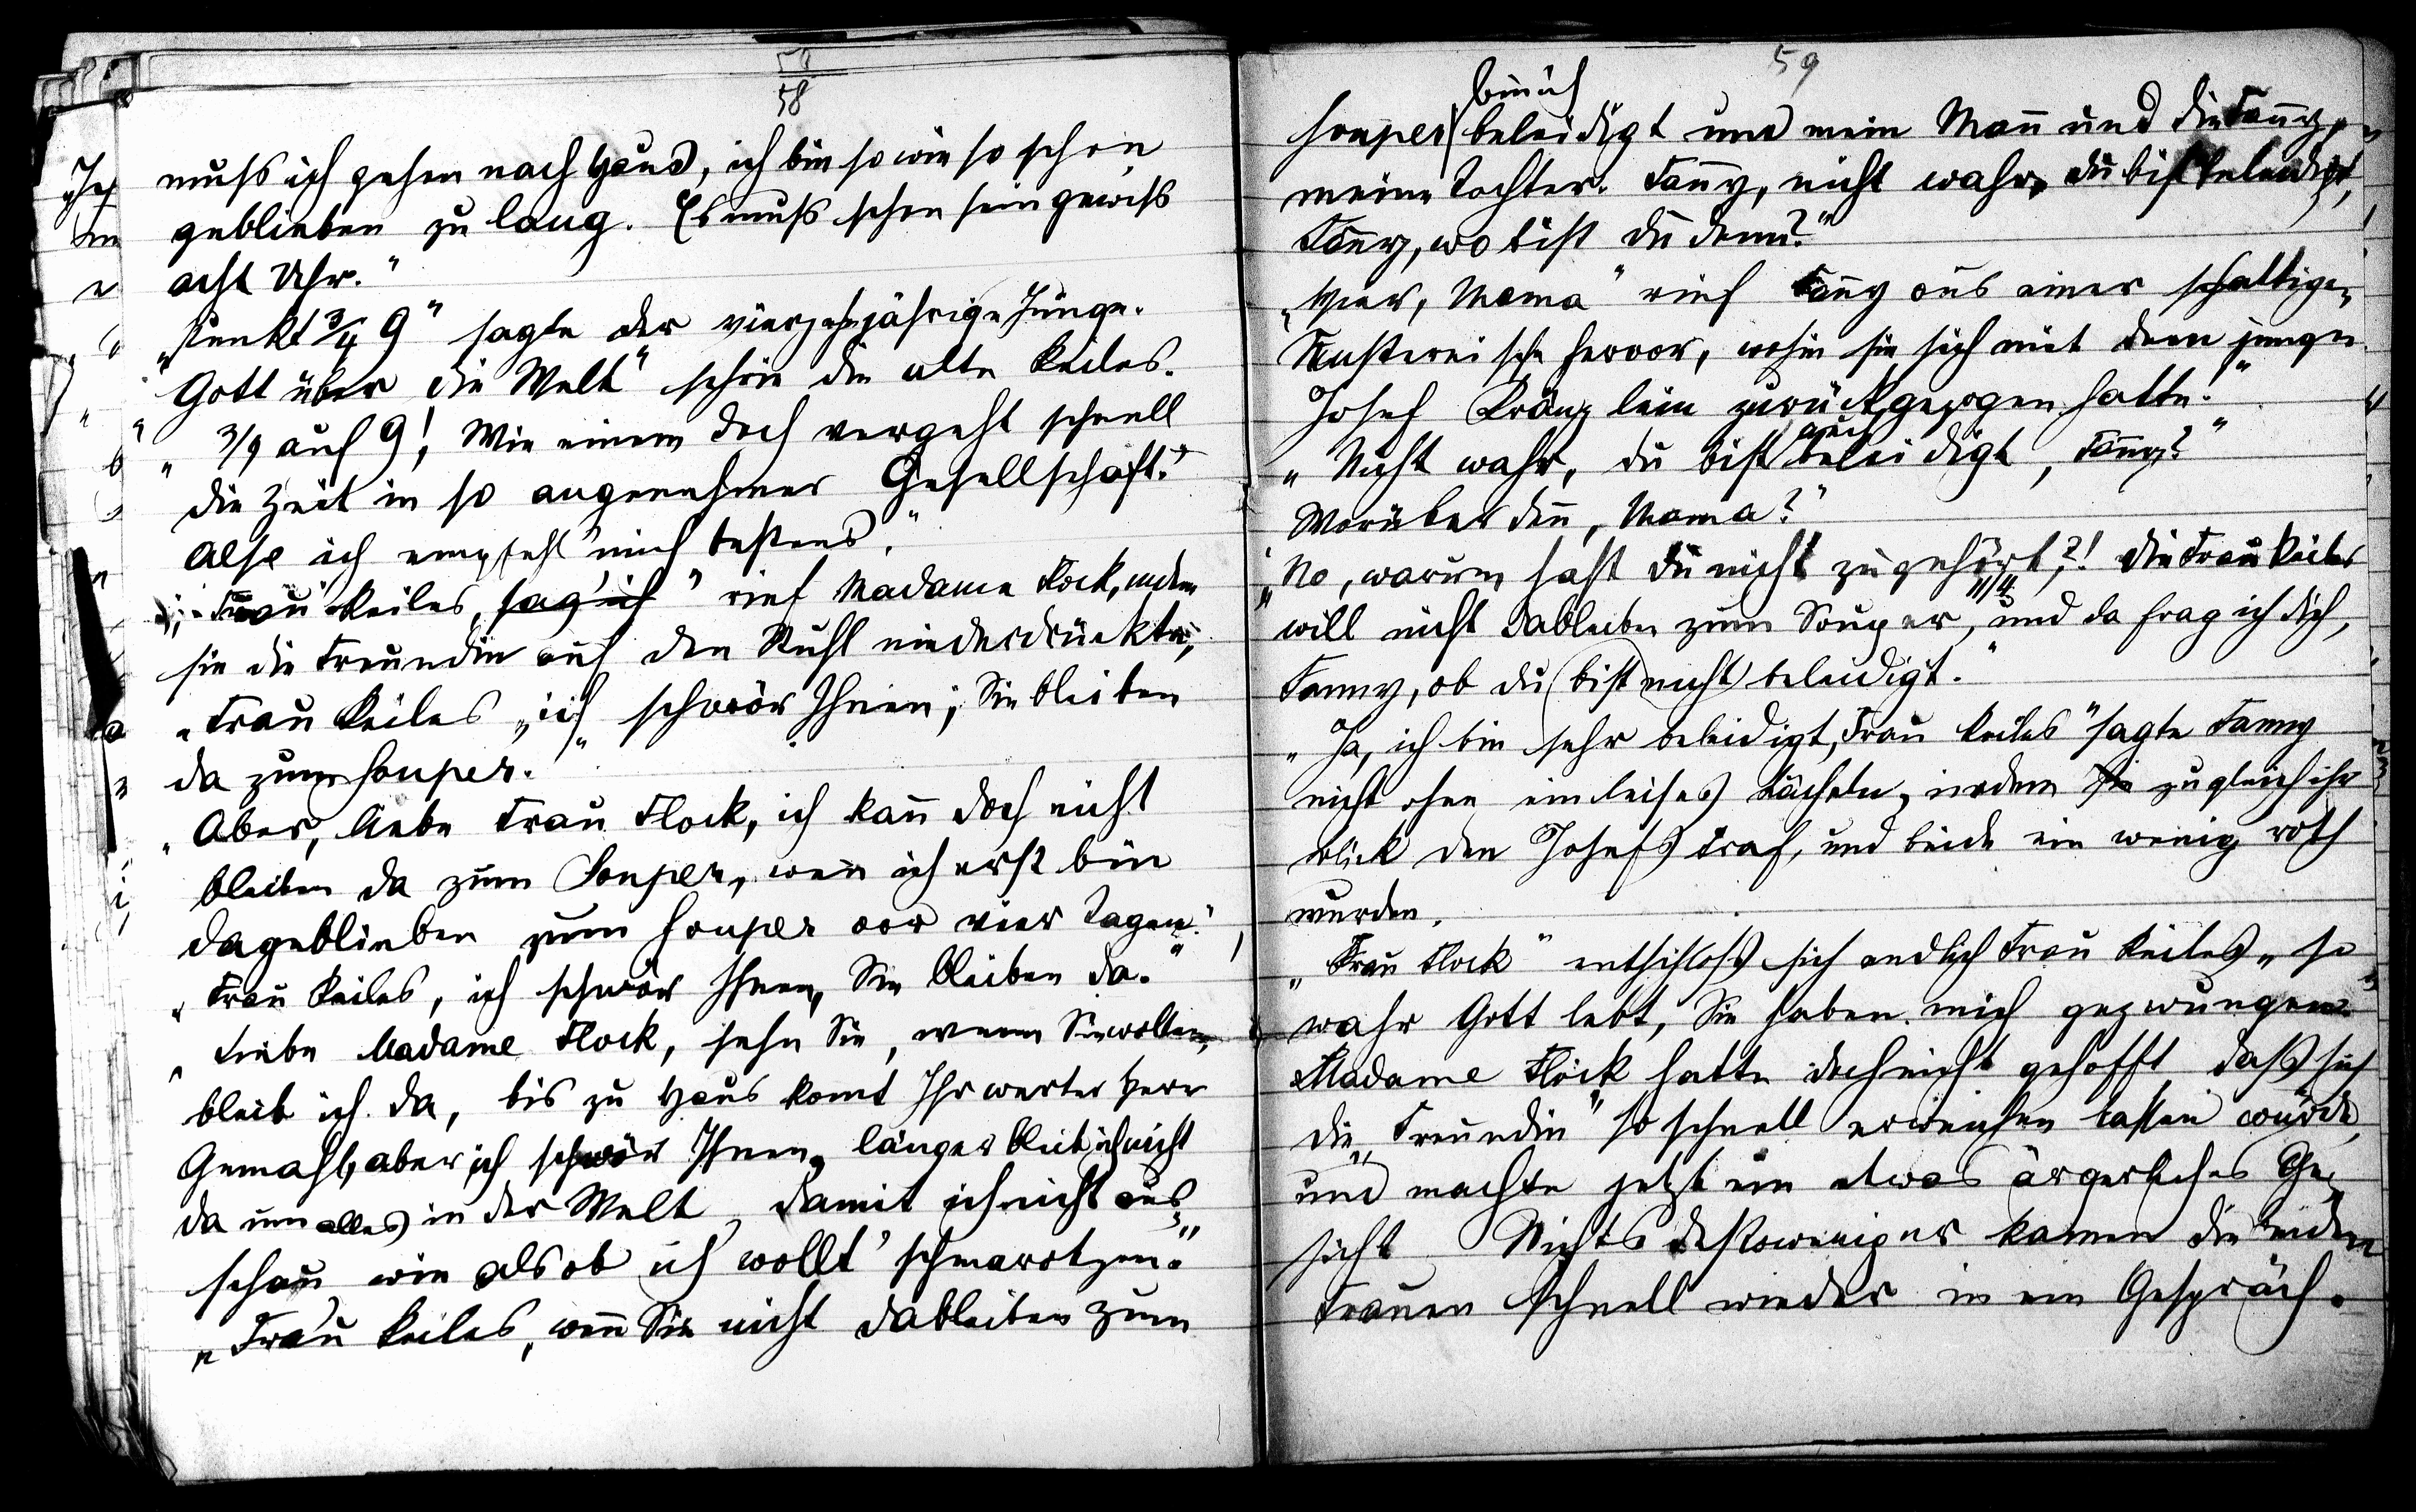 58
muss ich gehen nach Haus, ich bin sowieso schon
geblieben zu lang. Es muss schon sein gewiss
acht Uhr."
„Punkt 3/4 9" sagte der vierzehnjährige Junge.
„Gott über die Welt" schrie die alte Keiles.
„3/4 auf 9! Wie einem doch vergeht schnell
die Zeit in so angenehmer Gesellschaft."
Also ich empfehl mich bestens."
„Frau Keiles, sag' ich" rief Madame Flock, indem
sie die Freundin auf den Stuhl niederdrückte,
„Frau Keiles, ich schwör Ihnen, Sie bleiben
da zum Souper."
„Aber, liebe Frau Flock, ich kann doch nicht
bleiben da zum Souper, wenn ich erst bin
dageblieben zum Souper vor vier Tagen."
„Frau Keiles, ich schwör Ihnen, Sie bleiben da."
„Liebe Madame Flock, sehn Sie, wenn Sie wollen,
bleib ich da, bis zu Haus komt Ihr werter Herr
Gemahl, aber ich schwör Ihnen, länger bleib ich nicht
da um alles in der Welt, damit ich nicht aus-
schau wie als ob ich wollt' schmarotzen."
„Frau Keiles, wenn Sie nicht dableiben zum
59
bin ich
Souper beleidigt und mein Mann und die Fanny,
meine Tochter. Fanny, nicht wahr, du bist beleidigt,
Fanny, wo bist du denn?"
„Hier, Mama" rief Fanny aus einer schattigen
Fensternische hervor, wohin sie sich mit dem jungen
Josef Kränzlein zurückgezogen hatte.
auch
„Nicht wahr, du bist beleidigt, Fanny?"
Worüber denn, Mama?"
„No, warum hast du nicht zugehört?! Die Frau Keiles
will nicht dableiben zum Souper, und da frag ich dich,
Fanny, ob du bist nicht beleidigt."
„Ja, ich bin sehr beleidigt, Frau Keiles" sagte Fanny
nicht ohne ein leises Lächeln, indem sie zugleich ihr
Blick den Josefs traf, und beide ein wenig roth
wurden.
„Frau Flock" entschloss sich endlich Frau Keiles „so
wahr Gott lebt, Sie haben mich gezwungen."
Madame Flock hatte doch nicht gehofft dass sich
die „Freundin" so schnell erweichen lassen würde,
und machte jetzt ein etwas ärgerliches Ge-
sicht Nichts destoweniger kamen die beiden
Frauen schnell wieder in ein Gespräch.